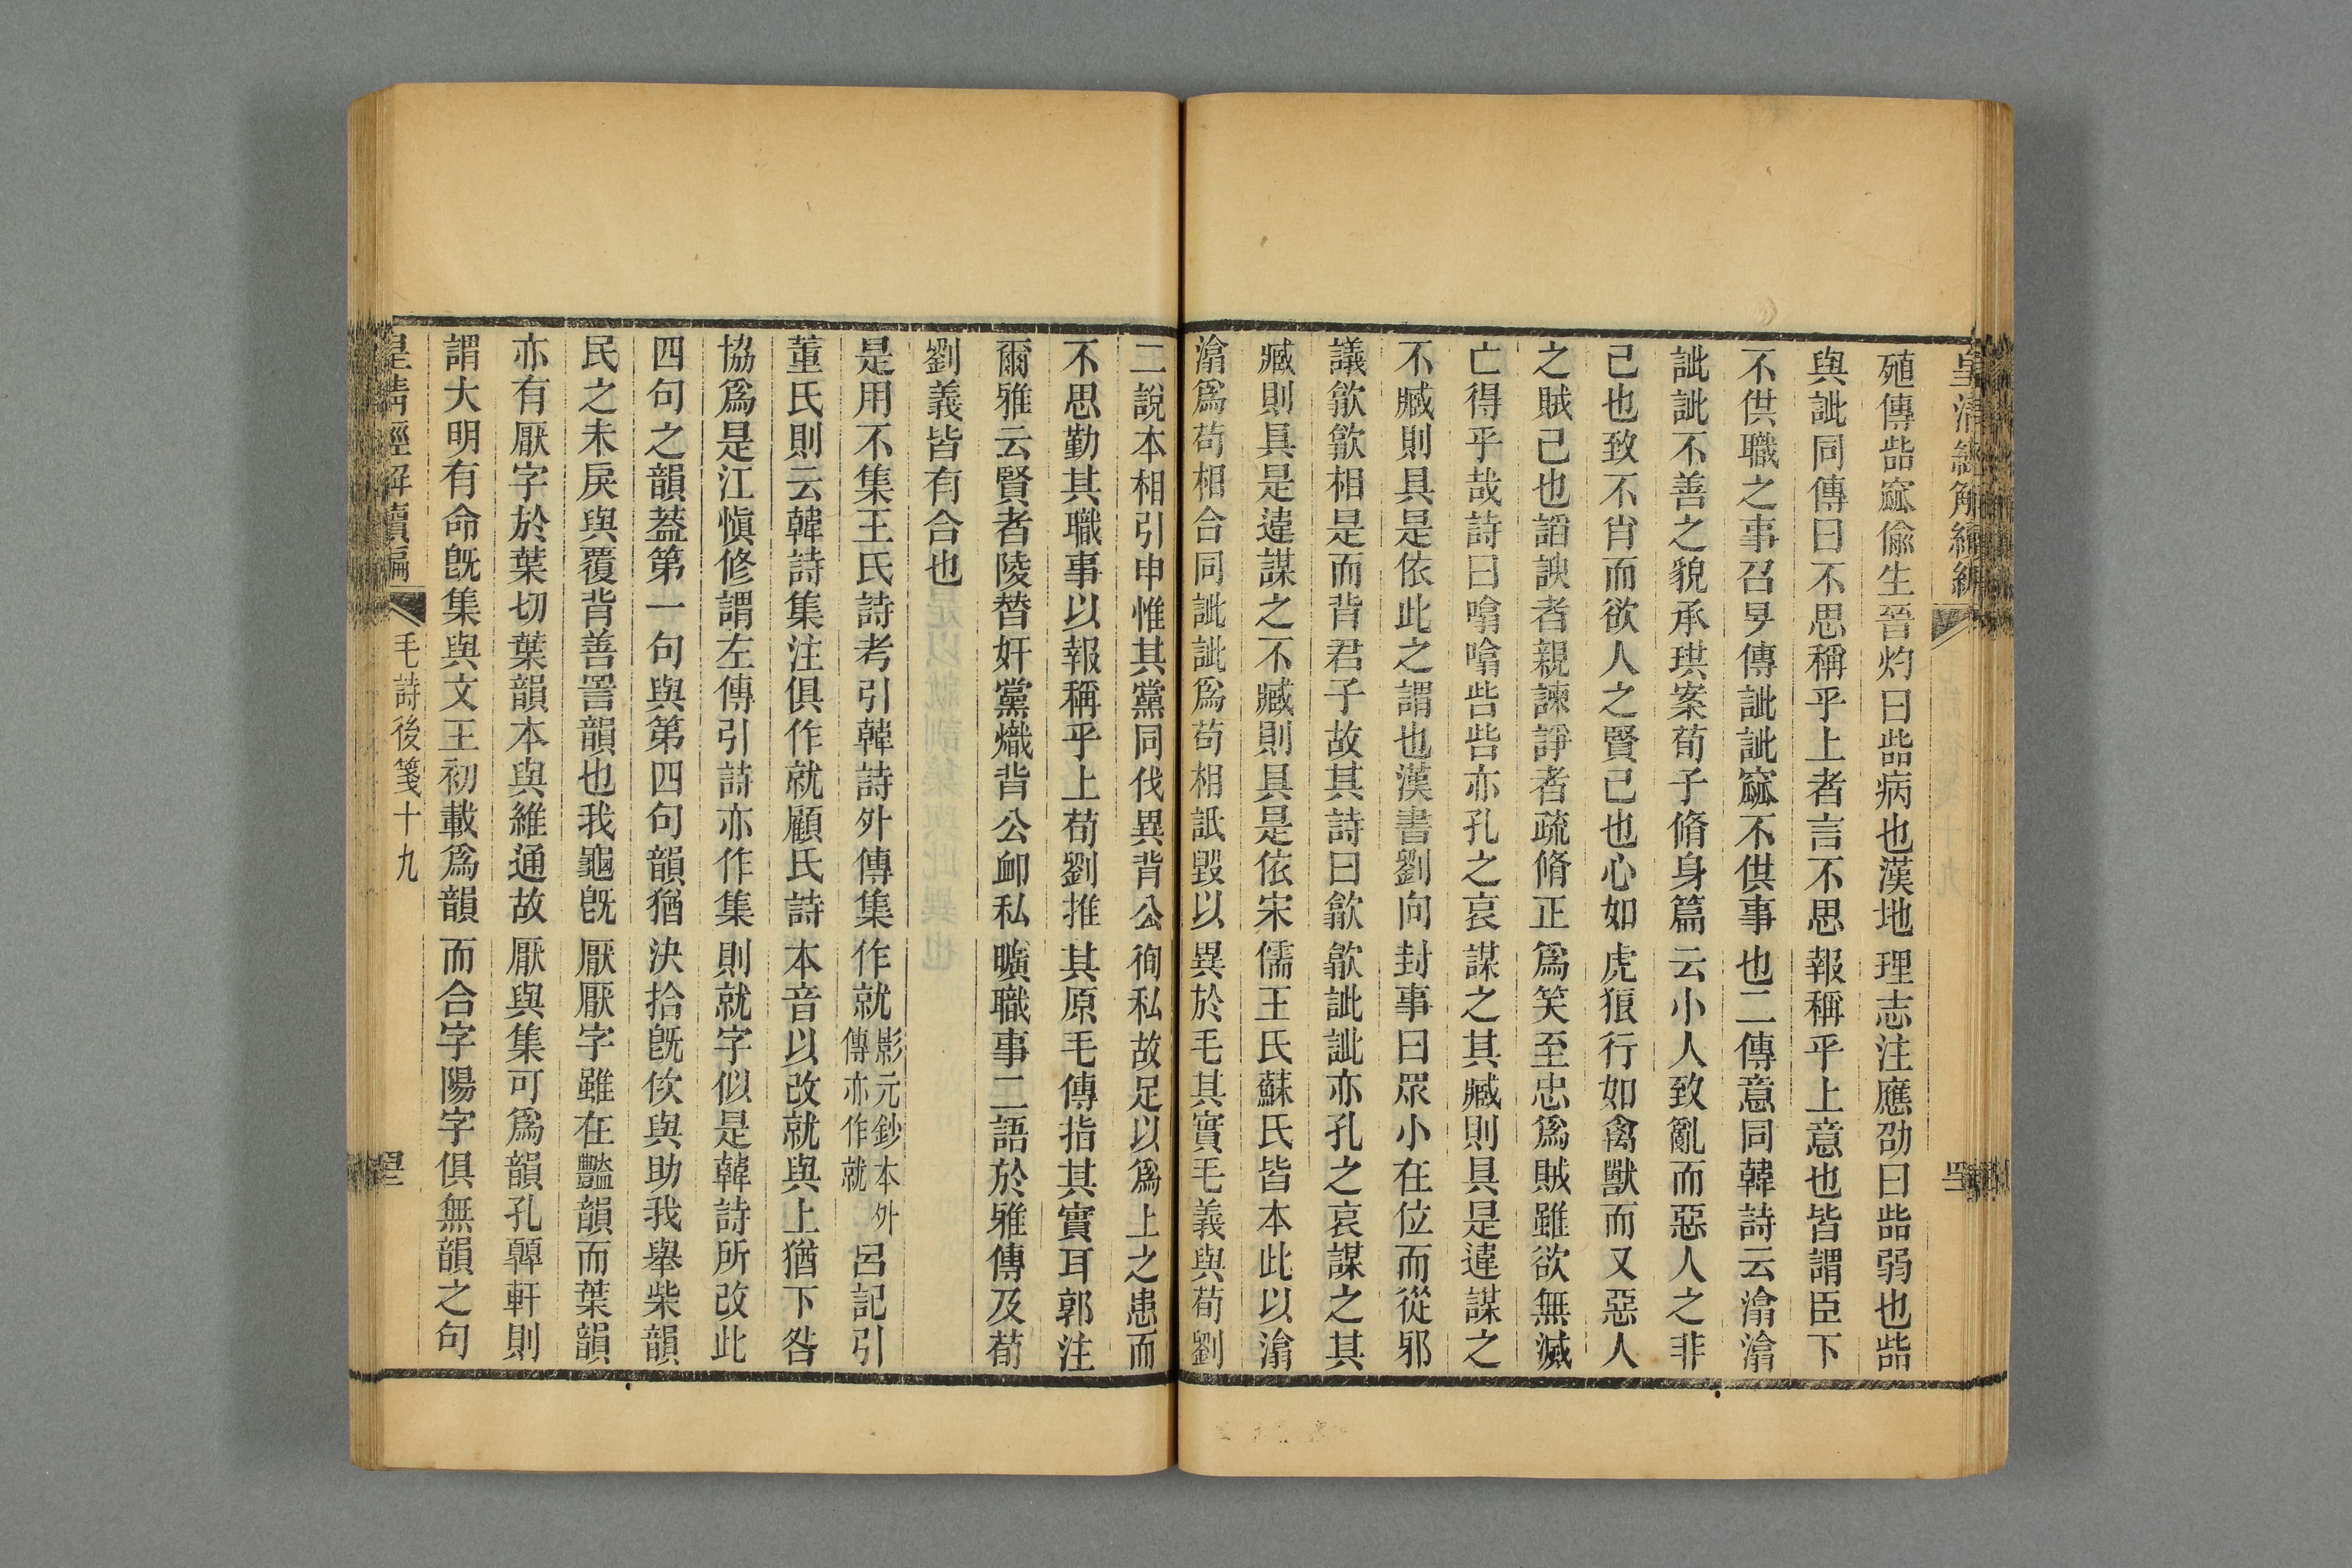 皇清經解續編
殖傳呰窳偷生晉灼曰呰病也漢地理志注應劭曰呰弱也呰
與訿同傳曰不思稱乎上者言不思報稱乎上意也皆謂臣下
不供職之事召旻傳訿訿窳不供事也二傳意同韓詩云潝潝
訿訿不善之貌承珙案荀子脩身篇云小人致亂而惡人之非
己也致不肖而欲人之賢己也心如虎狼行如禽獸而又惡人
之賊己也諂諛者親諫諍者疏脩正爲笑至忠爲賊雖欲無滅
亡得乎哉詩曰噏噏呰呰亦孔之哀謀之其臧則具是違謀之
不臧則具是依此之謂也漢書劉向封事曰眾小在位而從邪
議歙歙相是而背君子故其詩曰歙歙訿訿亦孔之哀謀之其
臧則具是違謀之不臧則具是依宋儒王氏蘇氏皆本此以潝
潝爲苟相合同訿訿爲苟相詆毀以異於毛其實毛義與荀劉
二說本相引申惟其黨同伐異背公徇私故足以爲上之患而
不思勤其職事以報稱乎上荀劉推其原毛傳指其實耳郭注
爾雅云賢者陵替奸黨熾背公卹私曠職事二語於雅傳及荀
劉義皆有合也
是用不集王氏詩考引韓詩外傳集作就影元鈔本外傳亦作就呂記引
董氏則云韓詩集注俱作就顧氏詩本音以改就與上猶下咎
協爲是江愼修謂左傳引詩亦作集則就字似是韓詩所改此
四句之韻蓋第一句與第四句韻猶決拾旣佽與助我舉柴韻
民之未戾與覆背善詈韻也我龜旣厭厭字雖在豔韻而葉韻
亦有厭字於葉切葉韻本與維通故厭與集可爲韻孔顨軒則
謂大明有命旣集與文王初載爲韻而合字陽字俱無韻之句
皇清經解續編
毛詩後箋十九